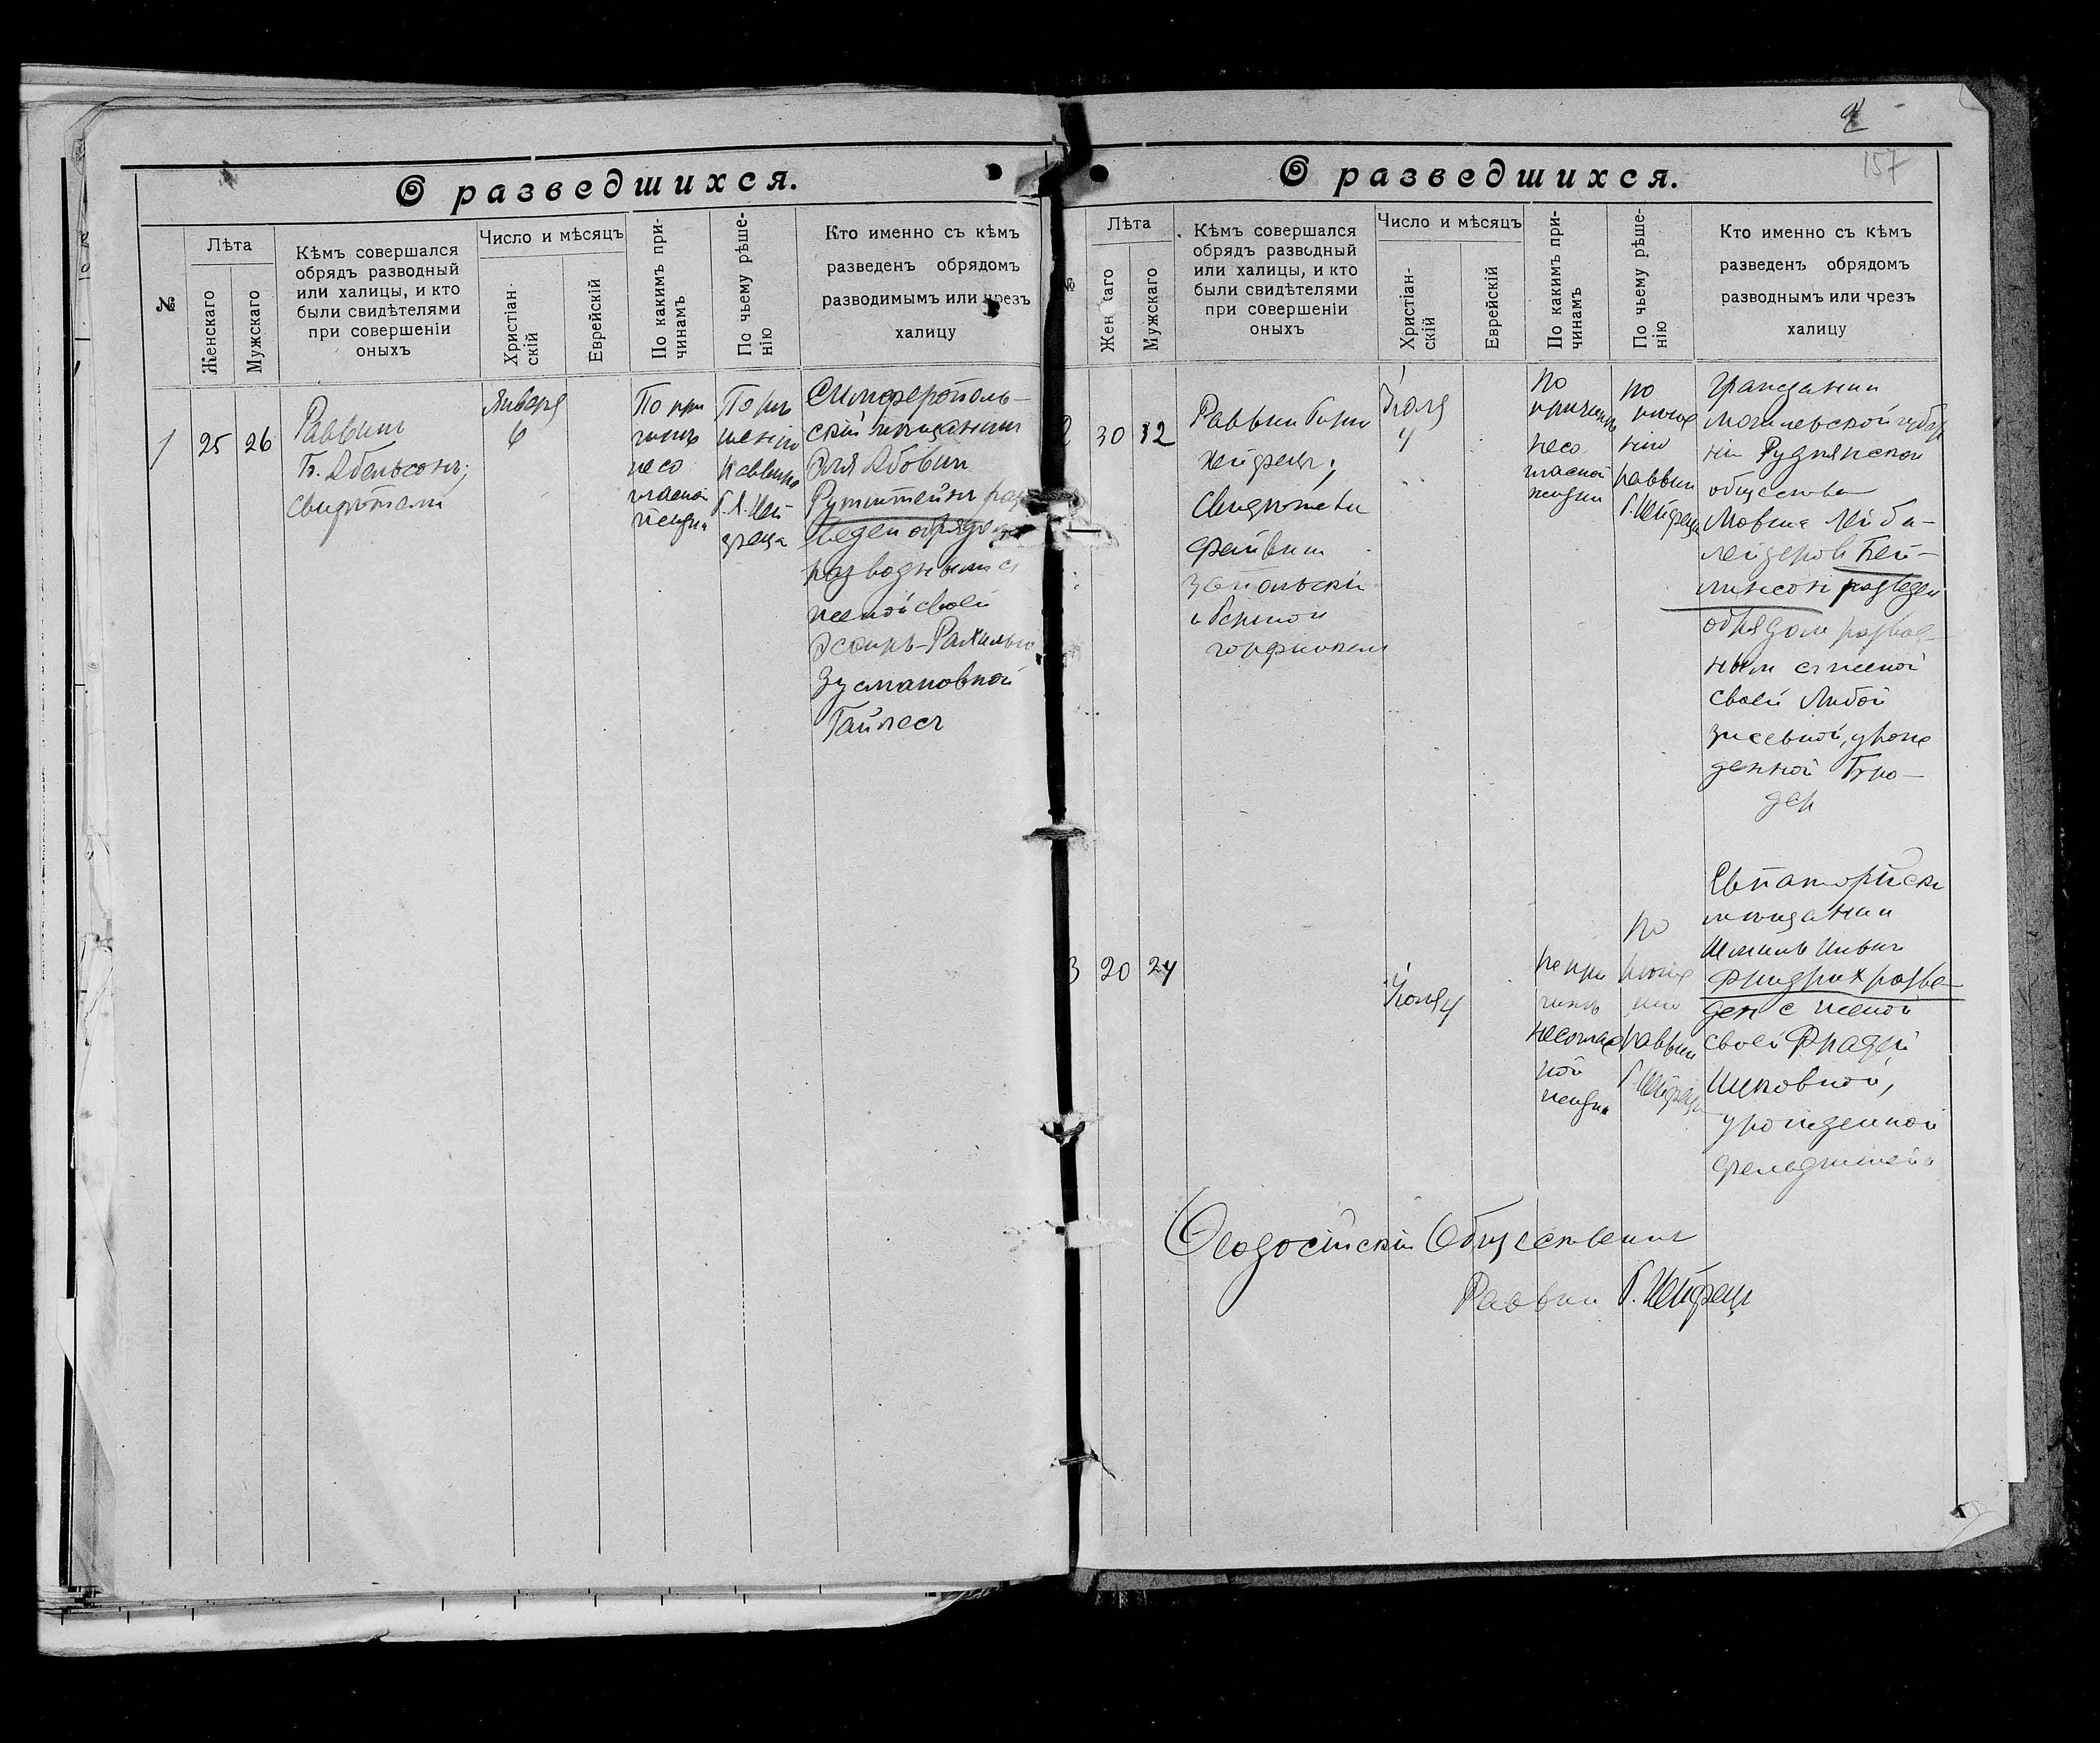 О разведшихся.
№
Лѣта
Женскаго
Мужскаго
Кѣмъ совершался
обрядъ разводный
или халицы, и кто
были свидѣтелями
при совершеніи
оныхъ
Число и мѣсяцъ
Христіан-
скій
Еврейскій
По какимъ при-
чинамъ
По чьему рѣше-
нію
Кто именно съ кѣмъ
разведенъ обрядомъ
разводимымъ или чрезъ
халицу
1
25
26
Раввинъ
Б. Абельсонъ;
Свидѣтели
Января
6
По при
чинѣ
несо
гласной
жизни
По рѣ
шенію
Раввина
Симферополь-
скій мѣщанинъ
Эля Абовичъ
Рутштейнъ раз
веденъ обрядом
разводнымъ с
женой своей
Эсфирь-Рахилью
Зусмановной
Гайлесъ
157
О разведшихся.
№
Лѣта
Женскаго
Мужскаго
Кѣмъ совершался
обрядъ разводный
или халицы, и кто
были свидѣтелями
при совершеніи
оныхъ
Число и мѣсяцъ
Христіан-
скій
Еврейскій
По какимъ при-
чинамъ
По чьему рѣше-
нію
Кто именно съ кѣмъ
разведенъ обрядомъ
разводнымъ или чрезъ
халицу
2
30
32
Раввин
Свидѣтели
Файвиш
Запольскій
и
Іюля
4
по
причинѣ
несо
гласной
жизни
по
рѣше
нію
раввин
гражданин
могилевской губер
ніи Руднянского
общества
Мовша Лейба-
лейзеров Бей-
линсон разведен
обрядом развод
ным с женой
своей Любой
урож
денной Бро-
дер
3
20
24
Іюля 4
по при
чинѣ
несоглас
ной
жизни
по
рѣше
нію
раввин
Евпаторійскій
мѣщанин
Фридрих разве-
ден с женой
своей Фрадей
Ицковной,
урожденной
Фельдштейн
Ѳеодосійскій Общественный
Раввин